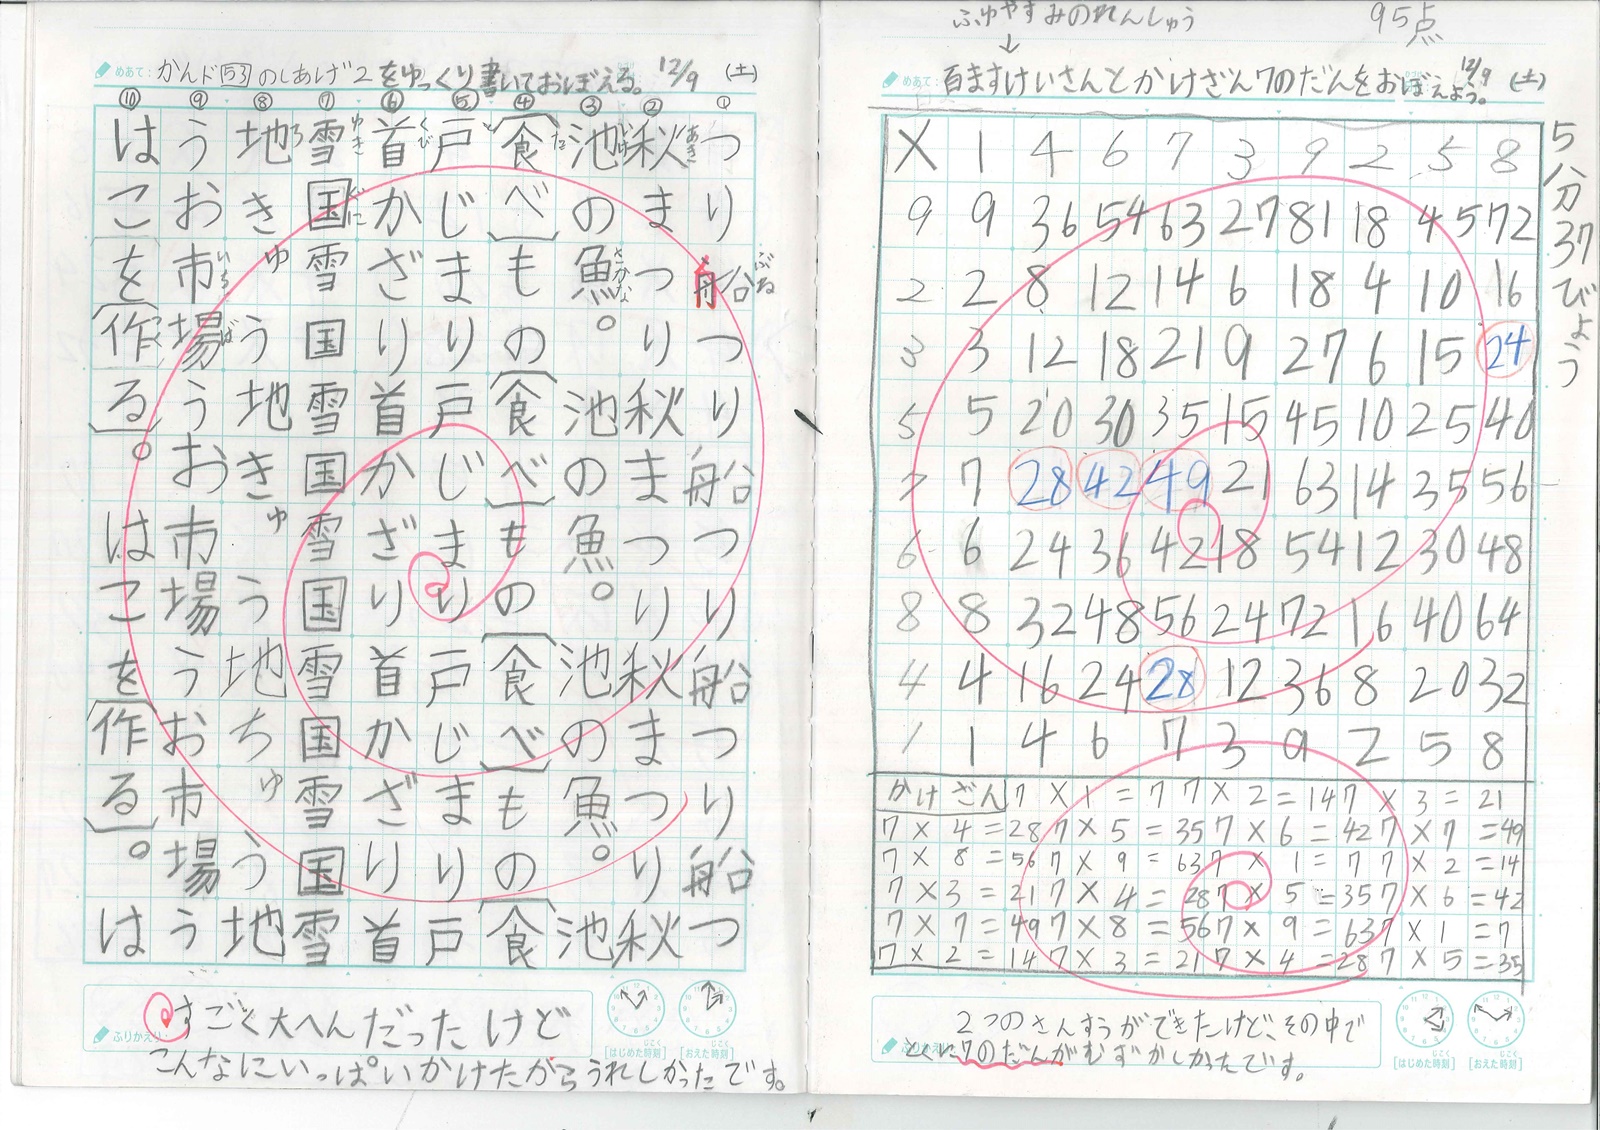 めあて：かんド53のしあげ2をゆっくり書いておぼえる。 12/9 (土)
① つり船つり船つり船つり船つ
ぶね
② 秋まつり秋まつり秋まつり秋
あき
③ 池の魚。池の魚。池の魚。池
いけ さかな
④ 食べもの食べもの食べもの食
た
⑤ 戸じまり戸じまり戸じまり戸
と
⑥ 首かざり首かざり首かざり首
くび
⑦ 雪国雪国雪国雪国雪国雪国雪
ゆき ぐに
⑧ 地きゅう地きゅう地ちゅう地
ち
⑨ うお市場うお市場うお市場う
いちば
⑩ はこを作る。はこを作る。は
つく
ふりかえり：
すごく大へんだったけど
こんなにいっぱいかけたからうれしかったです。
じこく じこく
[はじめた時刻] [おえた時刻]
ふゆやすみのれんしゅう
↓
95点
めあて：百ますけいさんとかけざん7のだんをおぼえよう。 12/9 (土)
5分37びょう
X 1 4 6 7 3 9 2 5 8
9 9 36 54 63 27 81 18 45 72
2 2 8 12 14 6 18 4 10 16
3 3 12 18 21 9 27 6 15 24
5 5 20 30 35 15 45 10 25 40
7 7 28 42 49 21 63 14 35 56
6 6 24 36 42 18 54 12 30 48
8 8 32 48 56 24 72 16 40 64
4 4 16 24 28 12 36 8 20 32
1 1 4 6 7 3 9 2 5 8
かけざん 7×1=7 7×2=14 7×3=21
7×4=28 7×5=35 7×6=42 7×7=49
7×8=56 7×9=63 7×1=7 7×2=14
7×3=21 7×4=28 7×5=35 7×6=42
7×7=49 7×8=56 7×9=63 7×1=7
7×2=14 7×3=21 7×4=28 7×5=35
ふりかえり：
2つのさんすうができたけど、その中で
とくに7のだんがむずかしかったです。
じこく じこく
[はじめた時刻] [おえた時刻]